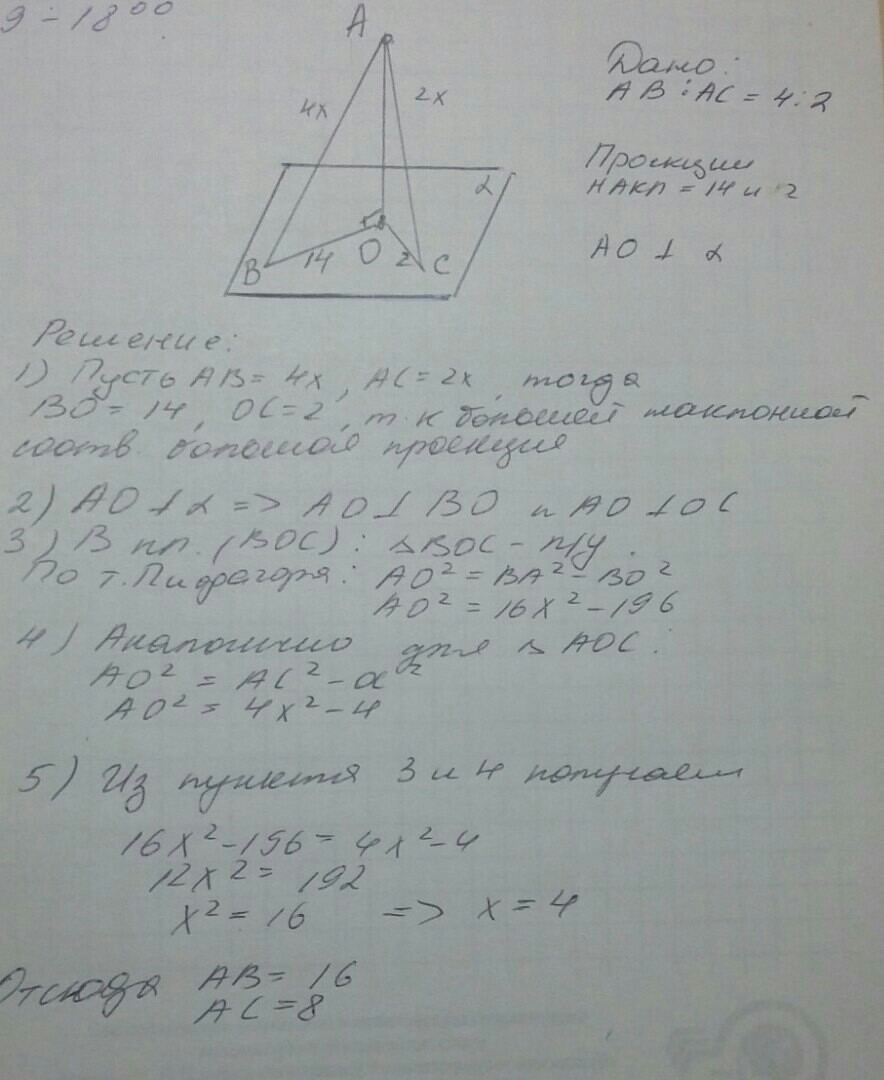 9 - 18⁰⁰
A
4x
2x
α
B
14
O
2
C
Дано:
AB : AC = 4:2
Проекции
накл = 14 и 2
AO ⊥ α
Решение:
1) Пусть AB = 4x, AC = 2x, тогда
BO = 14, OC = 2, т.к большей наклонной
соотв. большая проекция
2) AO ⊥ α => AO ⊥ BO и AO ⊥ OC
3) В пл. (BOC): △BOC - п/у.
По т. Пифагора: AO² = BA² - BO²
AO² = 16x² - 196
4) Аналогично для △ AOC:
AO² = AC² - OC²
AO² = 4x² - 4
5) Из пункта 3 и 4 получаем
16x² - 196 = 4x² - 4
12x² = 192
x² = 16 => x = 4
Отсюда AB = 16
AC = 8